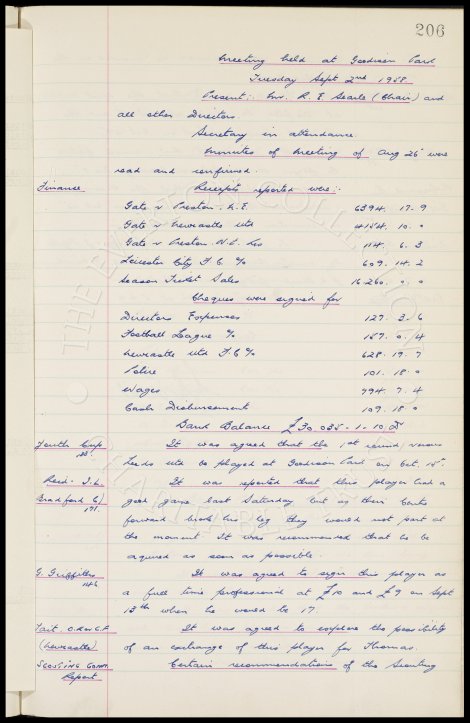 206
Meeting held at Goodison Park
Tuesday Sept 2nd 1958
Present:- Mr. R. E. Searle (Chair) and
all other Directors
Secretary in attendance
Minutes of meeting of Aug 26 were
read and confirmed.
Finance Receipts reported were:-
Gate v Preston. N.E. 6394. 17. 9
Gate v Newcastle Utd 4154. 10. 0
Gate v Preston. N.E. Res 114. 6. 3
Leicester City F.C. % 609. 14. 2
Season Ticket Sales 16.260. 0. 0
Cheques were signed for
Directors Expenses 127. 3. 6
Football League % 157. 0. 4
Newcastle Utd F.C % 628. 19. 7
Police 101. 18. 0
Wages 994. 7. 4
Cash Disbursement 109. 18. 0
Bank Balance £30 035. 1. 10.
Youth Cup It was agreed that the 1st round versus
Leeds Utd be played at Goodison Park on Oct. 15.
Reid. It was reported that this player had a
Bradford C/ good game last Saturday but as their Centre
191. forward broke his leg they would not part at
the moment. It was recommended that he be
acquired as soon as possible
G. Griffiths It was agreed to sign this player as
146 a full time professional at £10 and £9 on Sept
13th when he would be 17.
Tait. It was agreed to explore the possibility
(Newcastle) of an exchange of this player for Thomas.
Scouting Comm. Certain recommendations of the Scouting
Report
THE EVERTON COLLECTION
CHARITABLE TRUST